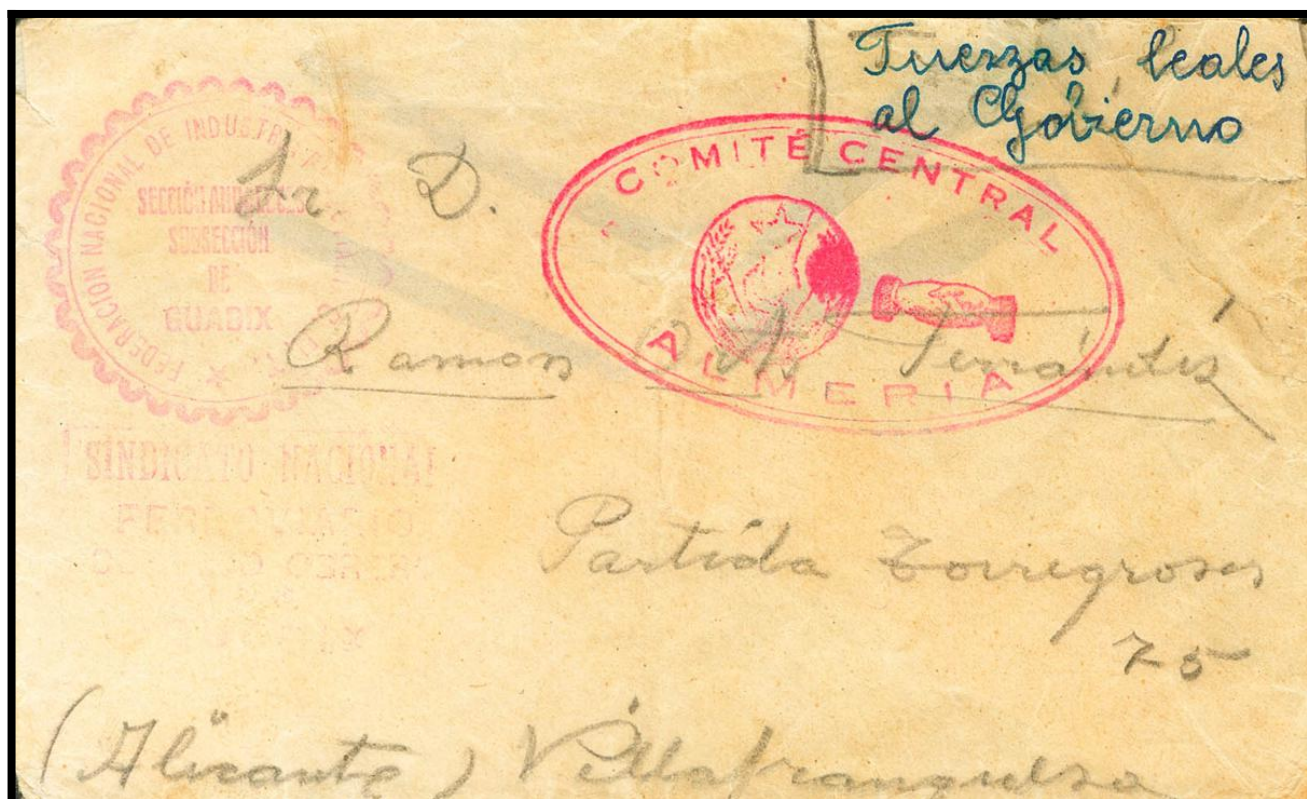 Fuerzas leales
al Gobierno
FEDERACION NACIONAL DE INDUSTRIA
SECCIÓN
SUBSECCIÓN
DE
GUADIX
COMITÉ CENTRAL
ALMERIA
Sr D.
Ramon
SINDICATO NACIONAL
Partida Torregrosa
75
(Alicante) Villafranqueza